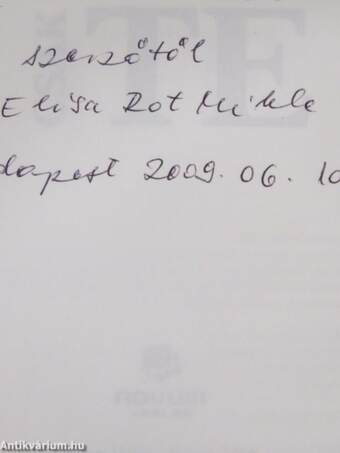 szerzőtől
Elisa Rot Mikle
dapest 2009. 06. 10
Antikvárium.hu